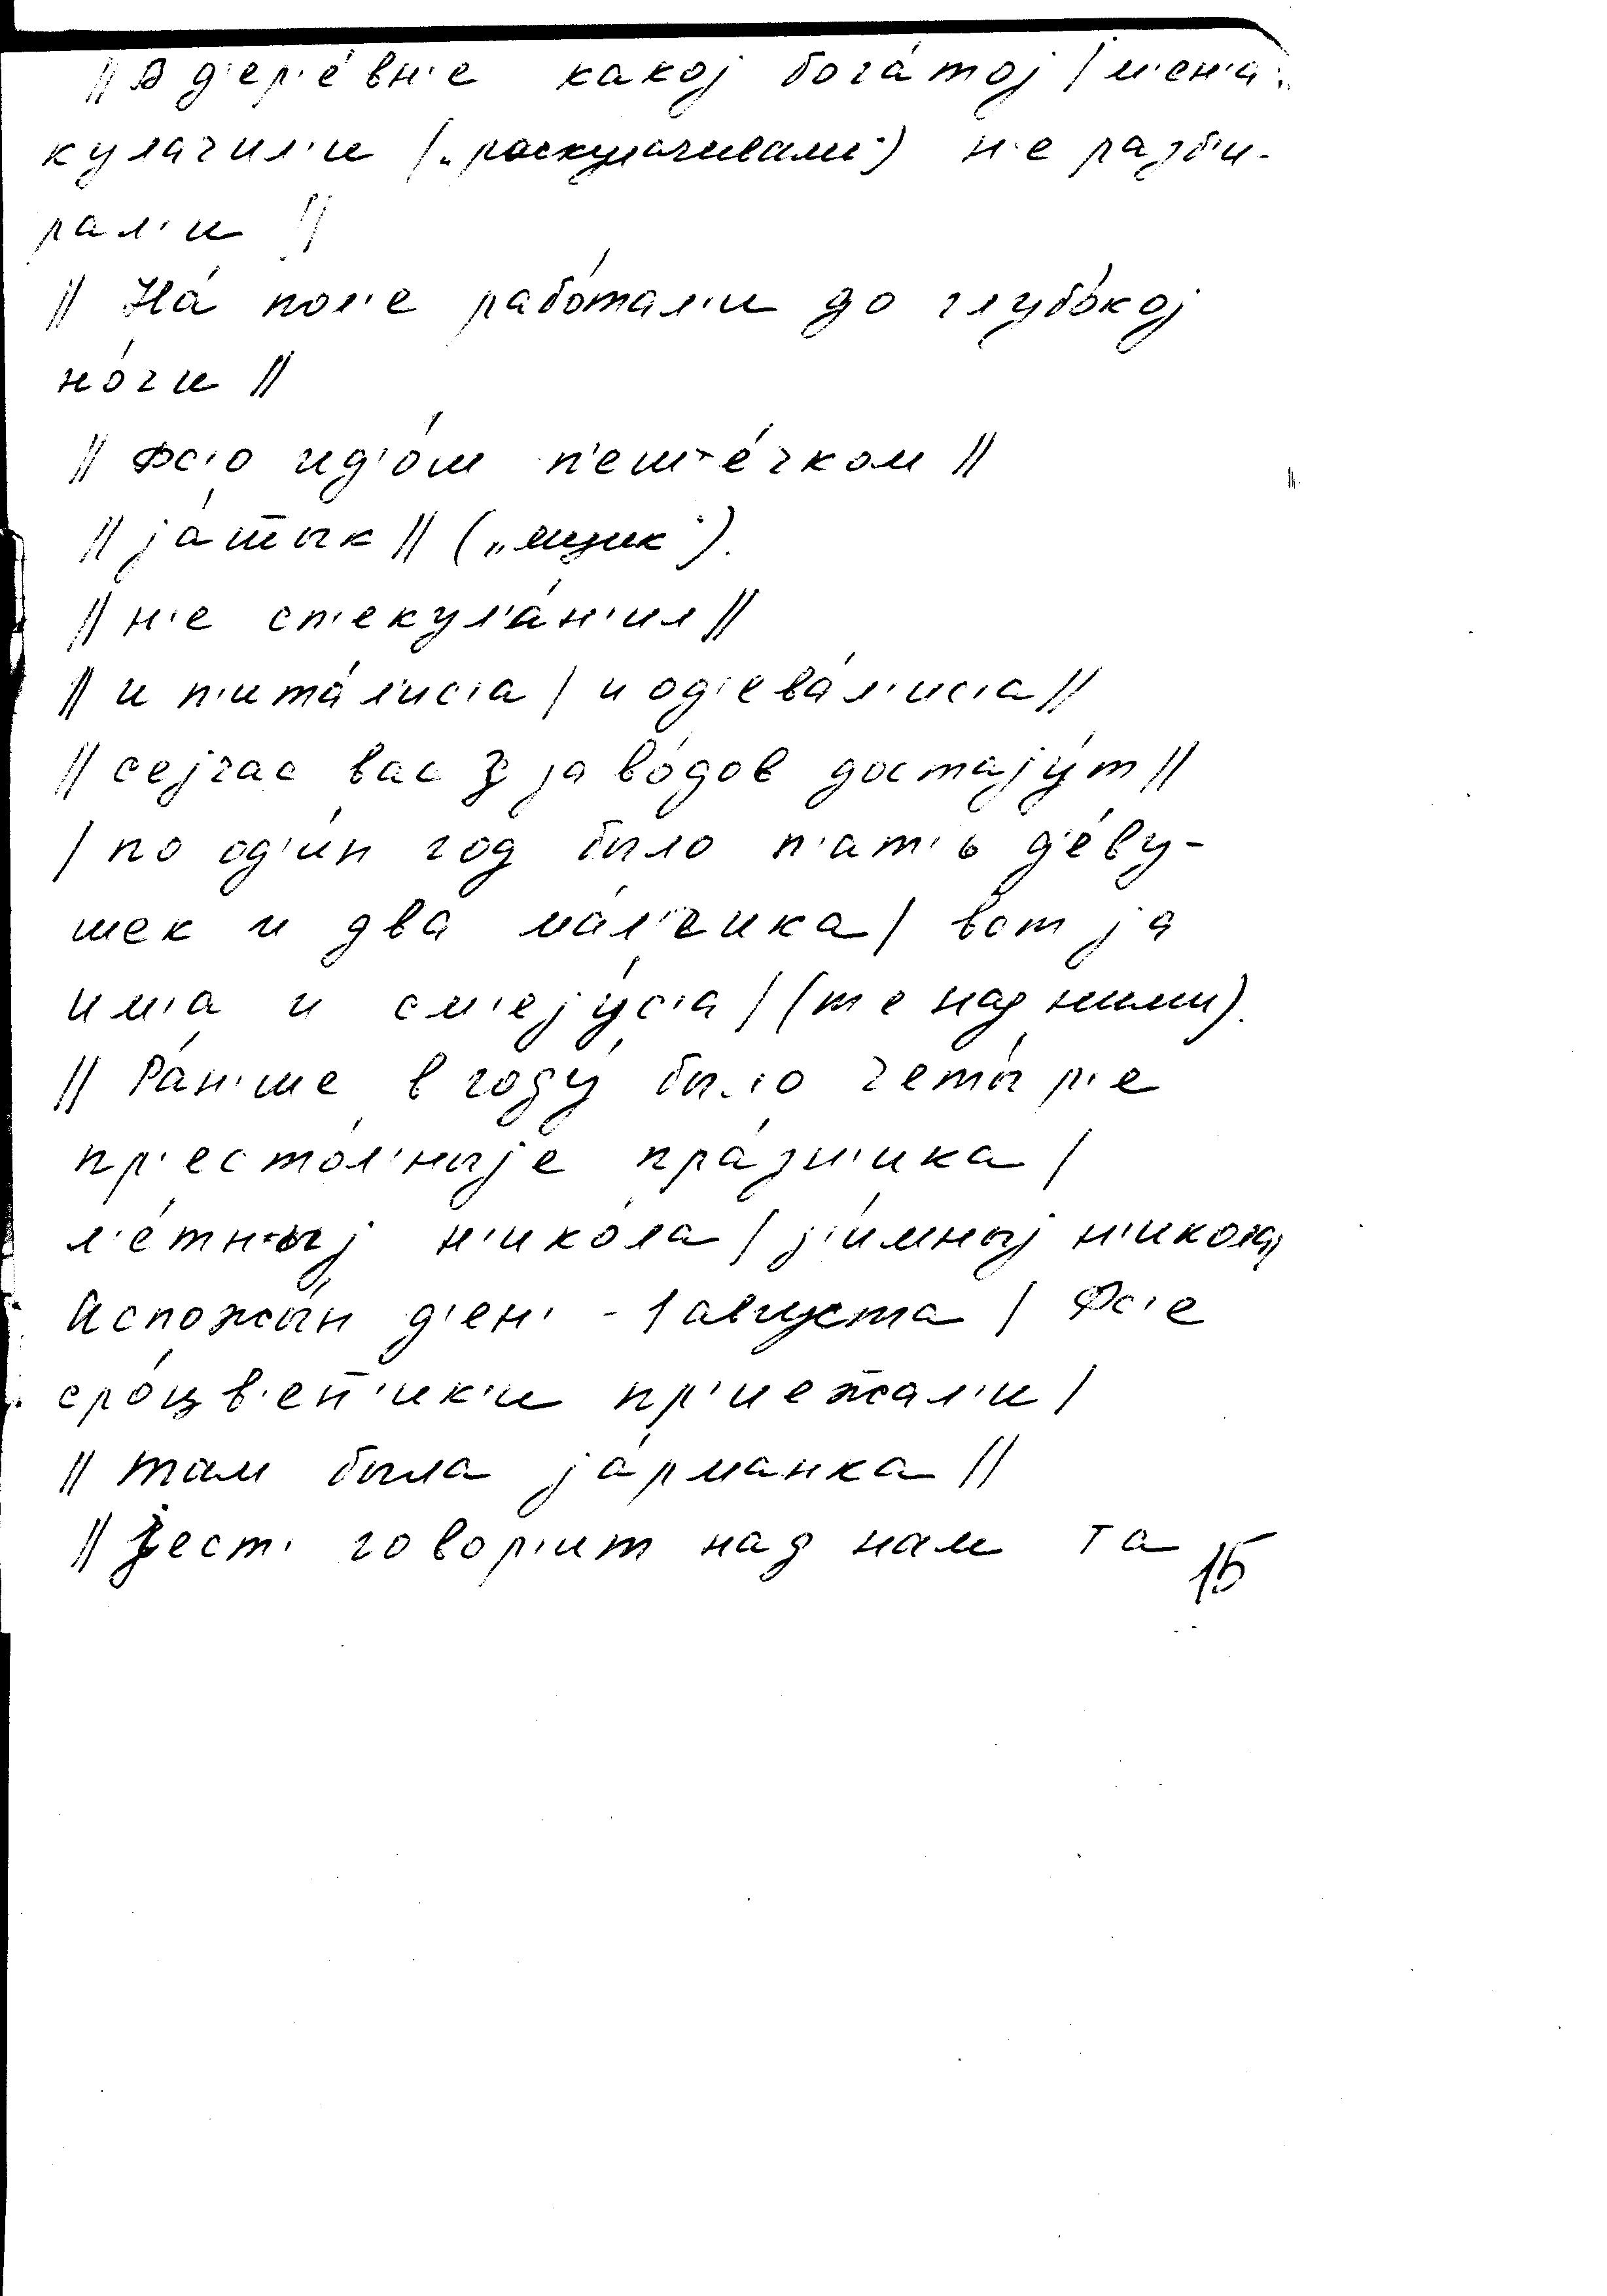 || В д'ер'е́вн'е какој бога́тој | м'ен'а
кулачил'и („раскулачивали“) н'е разб'и-
рал'и ||
|| На́ пол'е рабо́тал'и до глубо́кој
но́чи ||
|| Фс'о ид'о́ш п'еш'е́чком ||
|| ја́ш̄ык || („ящик“).
|| н'е сп'екул'а́н'ил ||
|| и п'ита́л'ис'а | и од'ева́л'ис'а ||
|| сејчас вас з јаво́дов достају́т ||
| по од'и́н год было п'ат'ь д'е́ву-
шек и два ма́л'чика | вот ја
им'а и см'еју́с'а | (т е над ними).
|| Ра́н'ше в году́ было четы́р'е
пр'есто́л'ныје пра́зн'ика |
л'е́тн'ыј н'ико́ла | з'и́мныј н'икола,
Аспожы́н д'ен' - 1 августа | Фс'е
сро́цв'ен̄'ик'и пр'иеж̄ал'и |
|| там была ја́рманка ||
|| јест' говор'ит над нам та
15